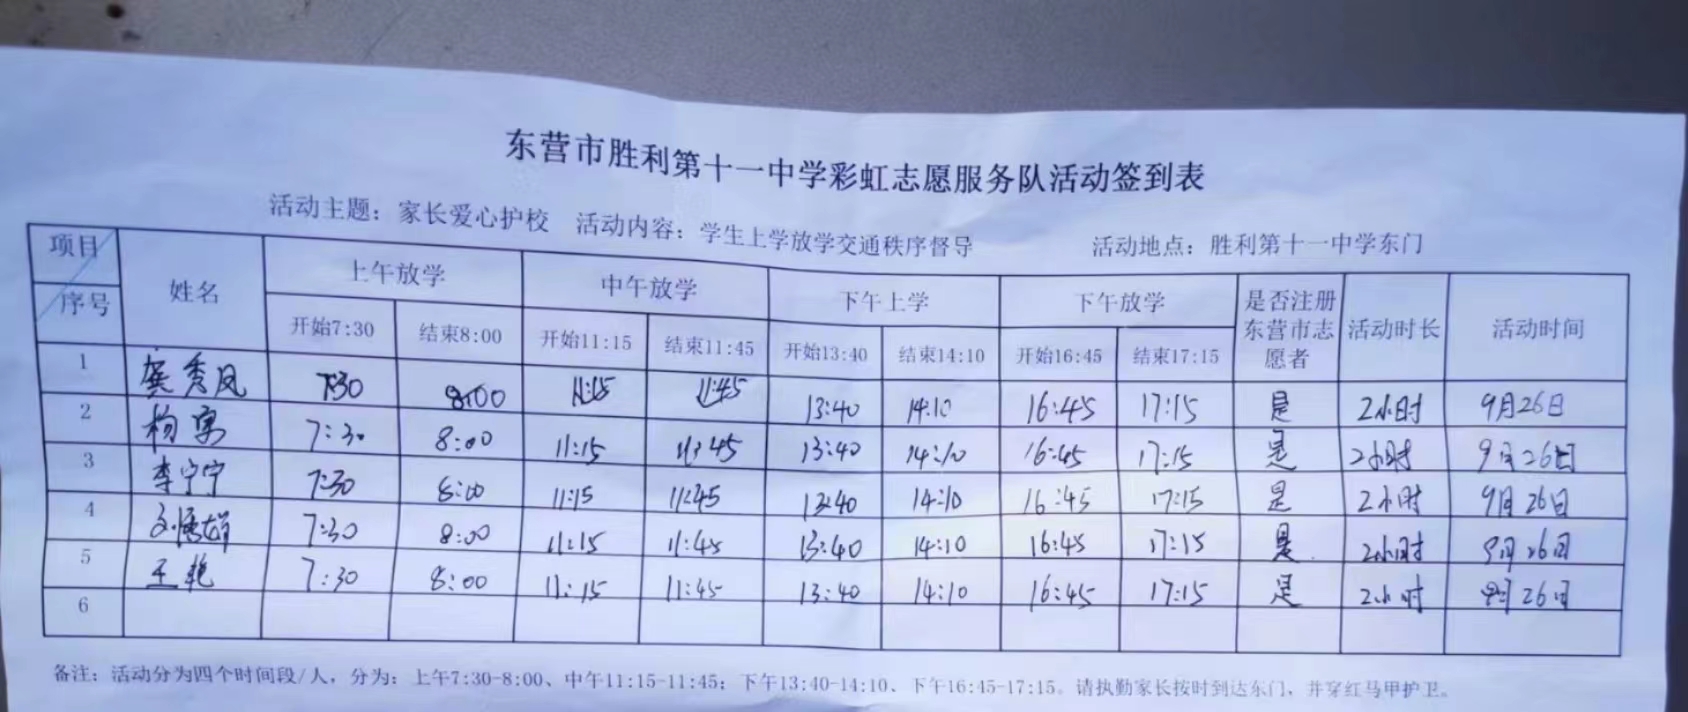 东营市胜利第十一中学彩虹志愿服务队活动签到表
活动主题：家长爱心护校 活动内容：学生上学放学交通秩序督导 活动地点：胜利第十一中学东门
项目 序号 姓名 上午放学 中午放学 下午上学 下午放学 是否注册东营市志愿者 活动时长 活动时间
开始7:30 结束8:00 开始11:15 结束11:45 开始13:40 结束14:10 开始16:45 结束17:15
1 龚秀凤 7:30 8:00 11:15 11:45 13:40 14:10 16:45 17:15 是 2小时 9月26日
2 杨 7:30 8:00 11:15 11:45 13:40 14:10 16:45 17:15 是 2小时 9月26日
3 李宁宁 7:30 8:00 11:15 11:45 13:40 14:10 16:45 17:15 是 2小时 9月26日
4 7:30 8:00 11:15 11:45 13:40 14:10 16:45 17:15 是 2小时 9月26日
5 王艳 7:30 8:00 11:15 11:45 13:40 14:10 16:45 17:15 是 2小时 9月26日
6
备注：活动分为四个时间段/人，分为：上午7:30-8:00、中午11:15-11:45；下午13:40-14:10、下午16:45-17:15。请执勤家长按时到达东门，并穿红马甲护卫。